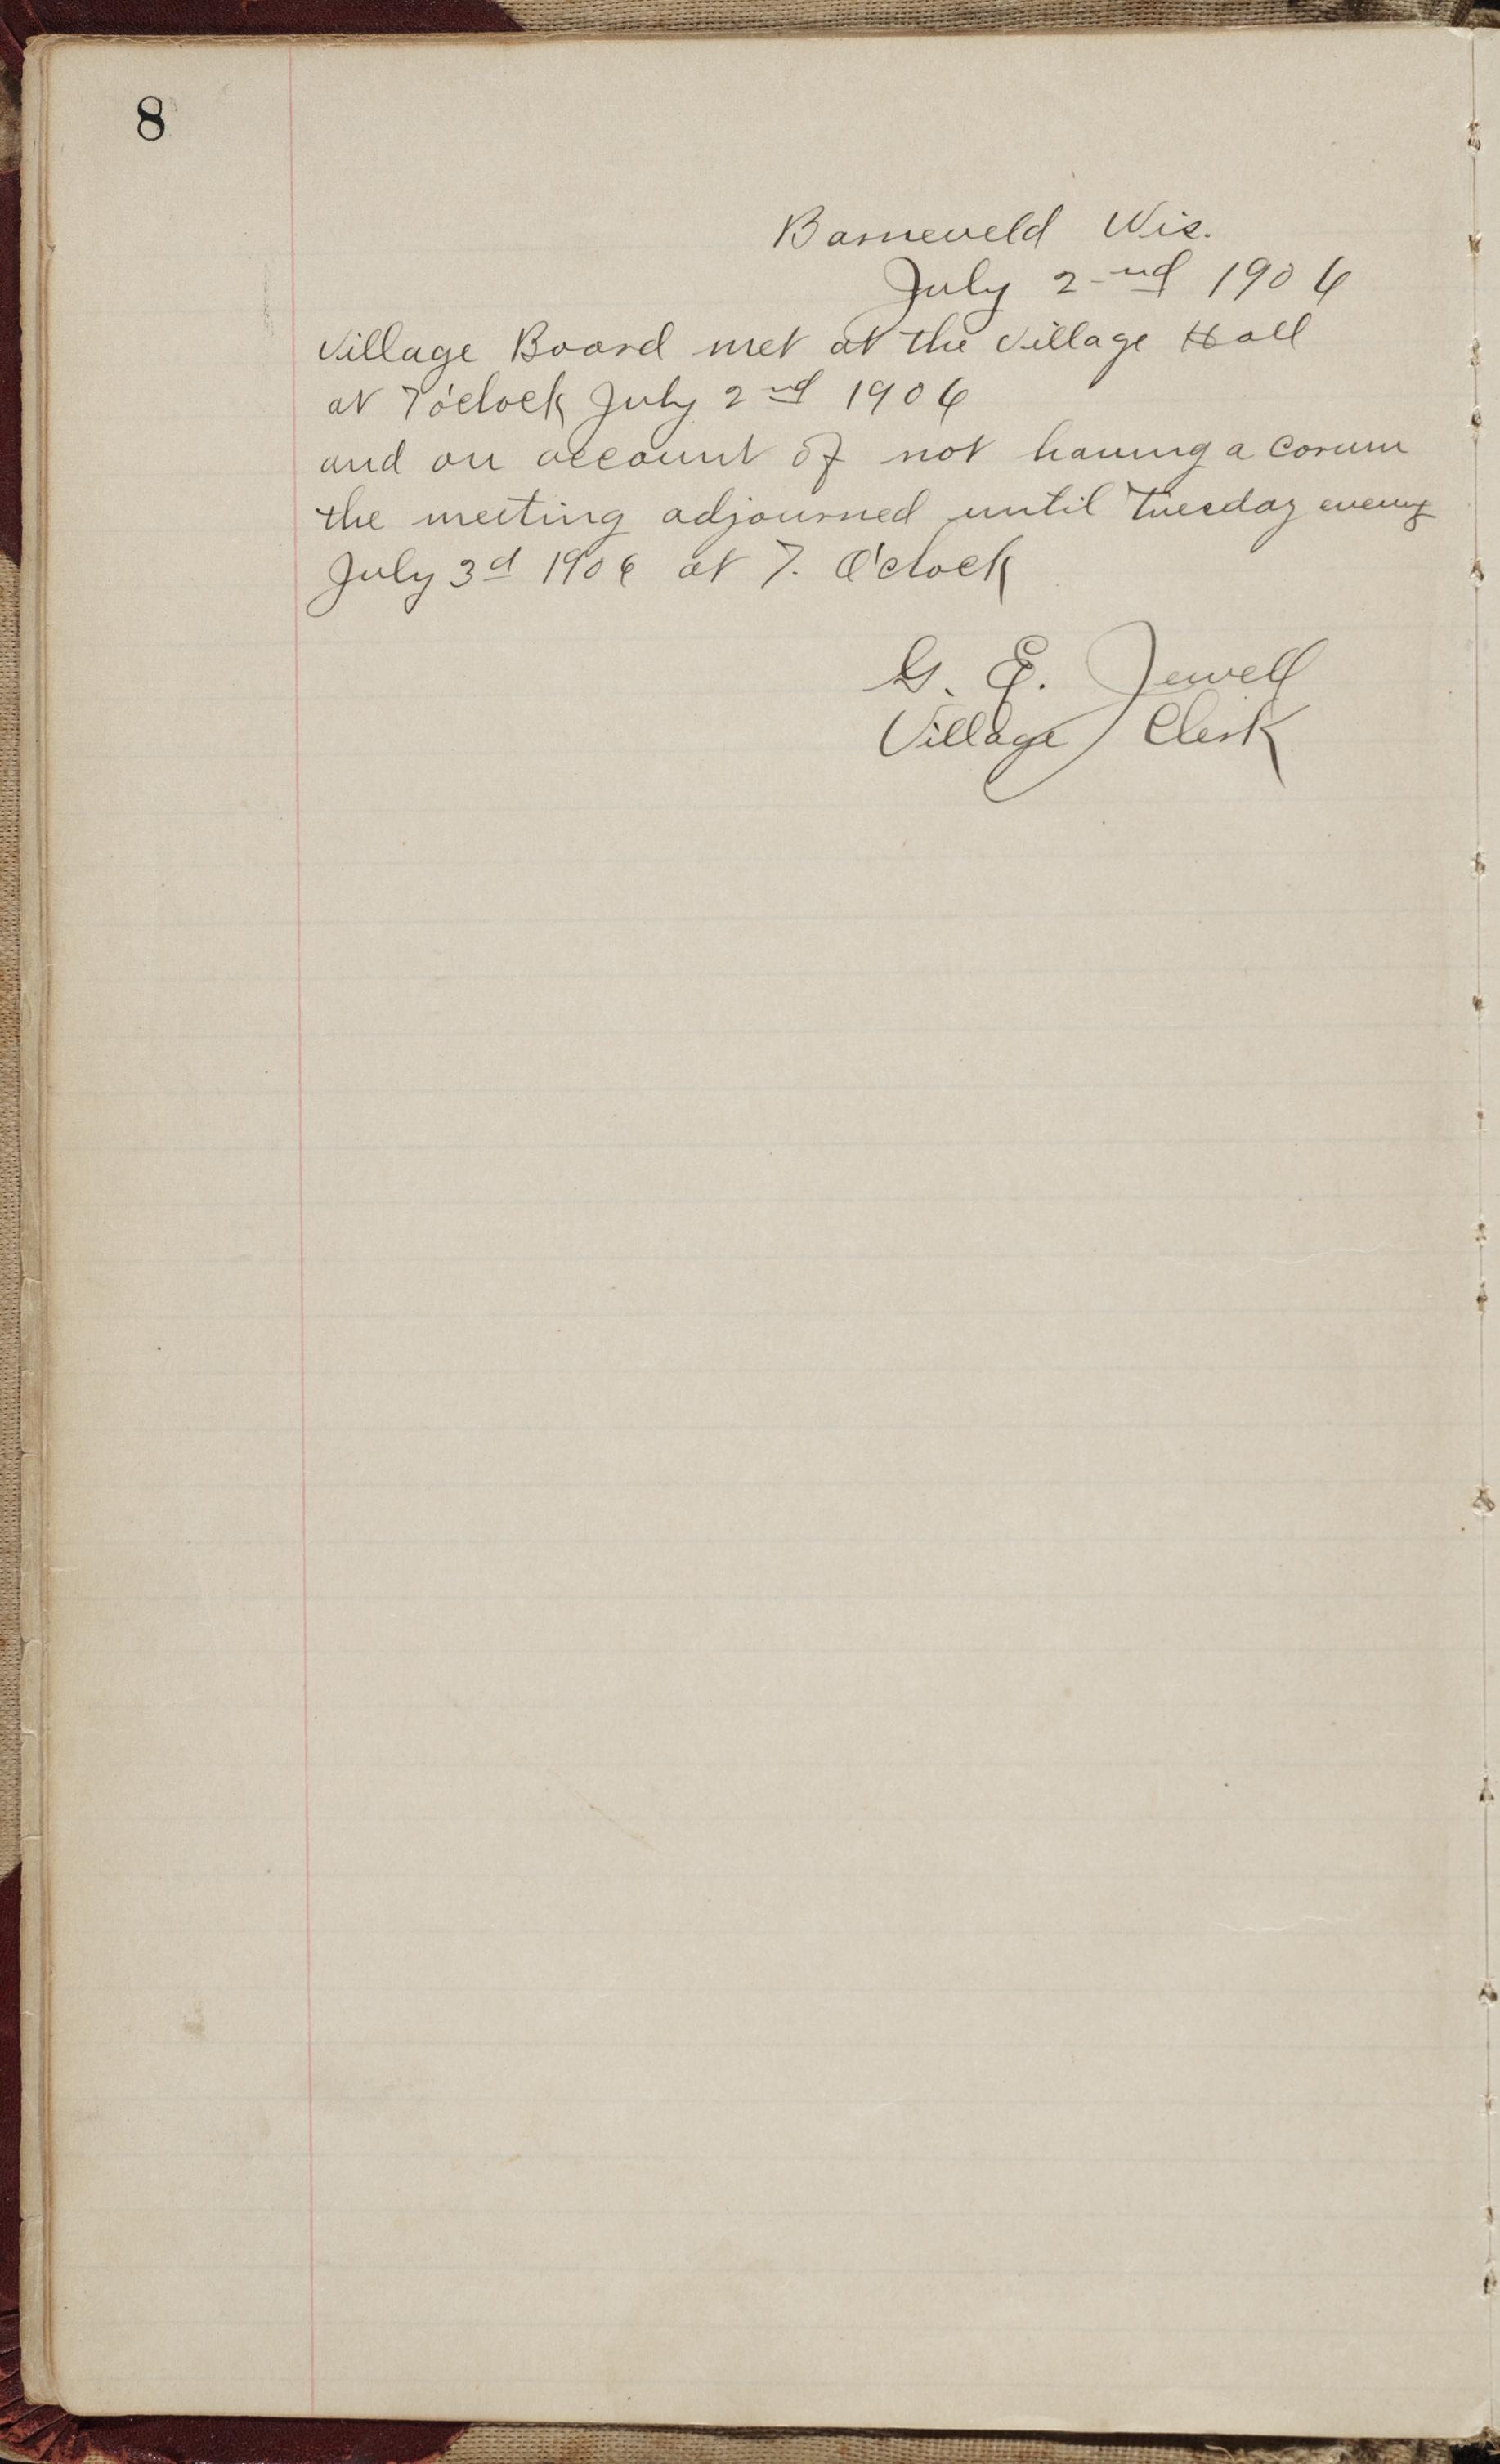 8
Barneveld Wis.
July 2nd 1906
Village Board met at the village Hall
at 7 o'clock July 2nd 1906
and on account of not having a corum
the meeting adjourned until Tuesday evening
July 3d 1906 at 7. O'clock
G. E. Jewell
Village Clerk